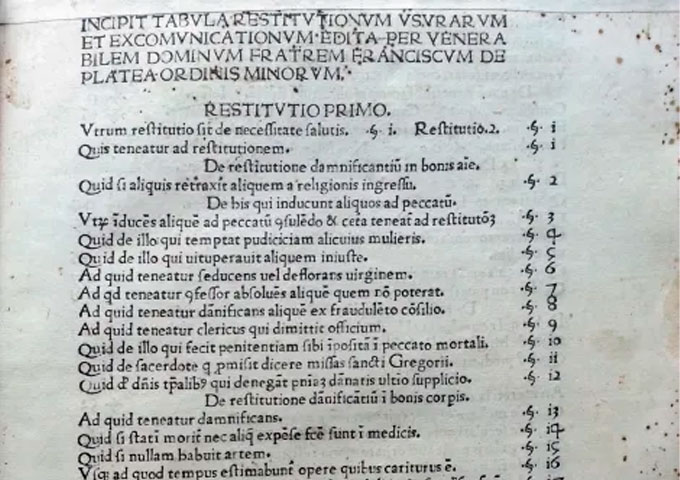 INCIPIT TABVLA RESTITVTIONVM VSVRARVM
ET EXCOMVNICATIONVM·EDITA·PER VENERA
BILEM DOMINVM FRATREM FRANCISCVM DE
PLATEA·ORDINIS MINORVM.
RESTITVTIO PRIMO.
Vtrum restitutio sit de necessitate salutis. ·§· i. Restitutio.2. ·§· i
Quis teneatur ad restitutionem. ·§· i
De restitutione damnificantiū in bonis aīe.
Quid si aliquis retraxit aliquem a religionis ingressu. ·§· 2
De his qui inducunt aliquos ad peccatū.
Vtꝝ īducēs aliquē ad peccatū ꝯsulēdo & ceta teneat ad restitutōꝫ ·§· 3
Quid de illo qui temptat pudiciciam alicuius mulieris. ·§· 4
Quid de illo qui uituperauit aliquem iniuste. ·§· 5
Ad quid teneatur seducens uel deflorans uirginem. ·§· 6
Ad qd teneatur ꝯfessor absoluēs aliquē quem nō poterat. ·§· 7
Ad quid teneatur dānificans aliquē ex fraudulēto cōsilio. ·§· 8
Ad quid teneatur clericus qui dimittit officium. ·§· 9
Quid de illo qui fecit penitentiam sibi īpositā ī peccato mortali. ·§· 10
Quid de sacerdote q ꝓmisit dicere missas sancti Gregorii. ·§· ii
Quid đ dn̄is tꝑalibꝫ qui denegāt pn̄iaꝫ dānatis ultio supplicio. ·§· i2
De restitutione dānificātiū ī bonis corpis.
Ad quid teneatur damnificans. ·§· i3
Quid si statī morit nec aliq expēse fcē sunt ī medicis. ·§· i4
Quid si nullam habuit artem. ·§· i5
Vsqꝫ ad quod tempus estimabunt opere quibus cariturus ē. ·§· i6